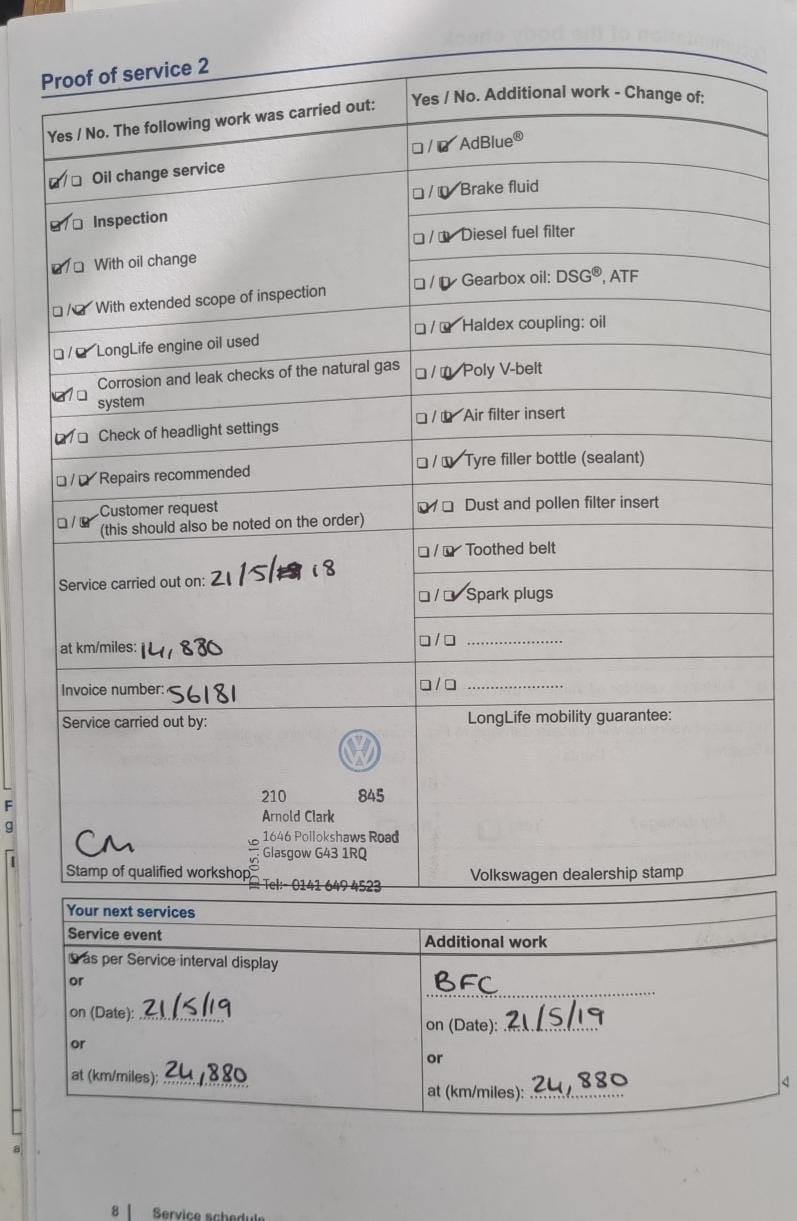 Proof of service 2
Yes / No. The following work was carried out:
☑/☐ Oil change service
☑/☐ Inspection
☑/☐ With oil change
☐/☑ With extended scope of inspection
☐/☑ LongLife engine oil used
☑/☐ Corrosion and leak checks of the natural gas
system
☑/☐ Check of headlight settings
☐/☑ Repairs recommended
☐/☑ Customer request
(this should also be noted on the order)
Service carried out on: 21/5/ 18
at km/miles: 14,880
Invoice number: 56181
Service carried out by:
210 845
Arnold Clark
1646 Pollokshaws Road
Glasgow G43 1RQ
Tel:- 0141 649 4523
05.16
CM
Stamp of qualified workshop
Yes / No. Additional work - Change of:
☐/☑ AdBlue®
☐/☑ Brake fluid
☐/☑ Diesel fuel filter
☐/☑ Gearbox oil: DSG®, ATF
☐/☑ Haldex coupling: oil
☐/☑ Poly V-belt
☐/☑ Air filter insert
☐/☑ Tyre filler bottle (sealant)
☑/☐ Dust and pollen filter insert
☐/☑ Toothed belt
☐/☑ Spark plugs
☐/☐ ....................
☐/☐ ....................
LongLife mobility guarantee:
Volkswagen dealership stamp
Your next services
Service event
☑ as per Service interval display
or
on (Date): 21/5/19
or
at (km/miles): 24,880
Additional work
BFC
on (Date): 21/5/19
or
at (km/miles): 24,880
8 | Service schedule